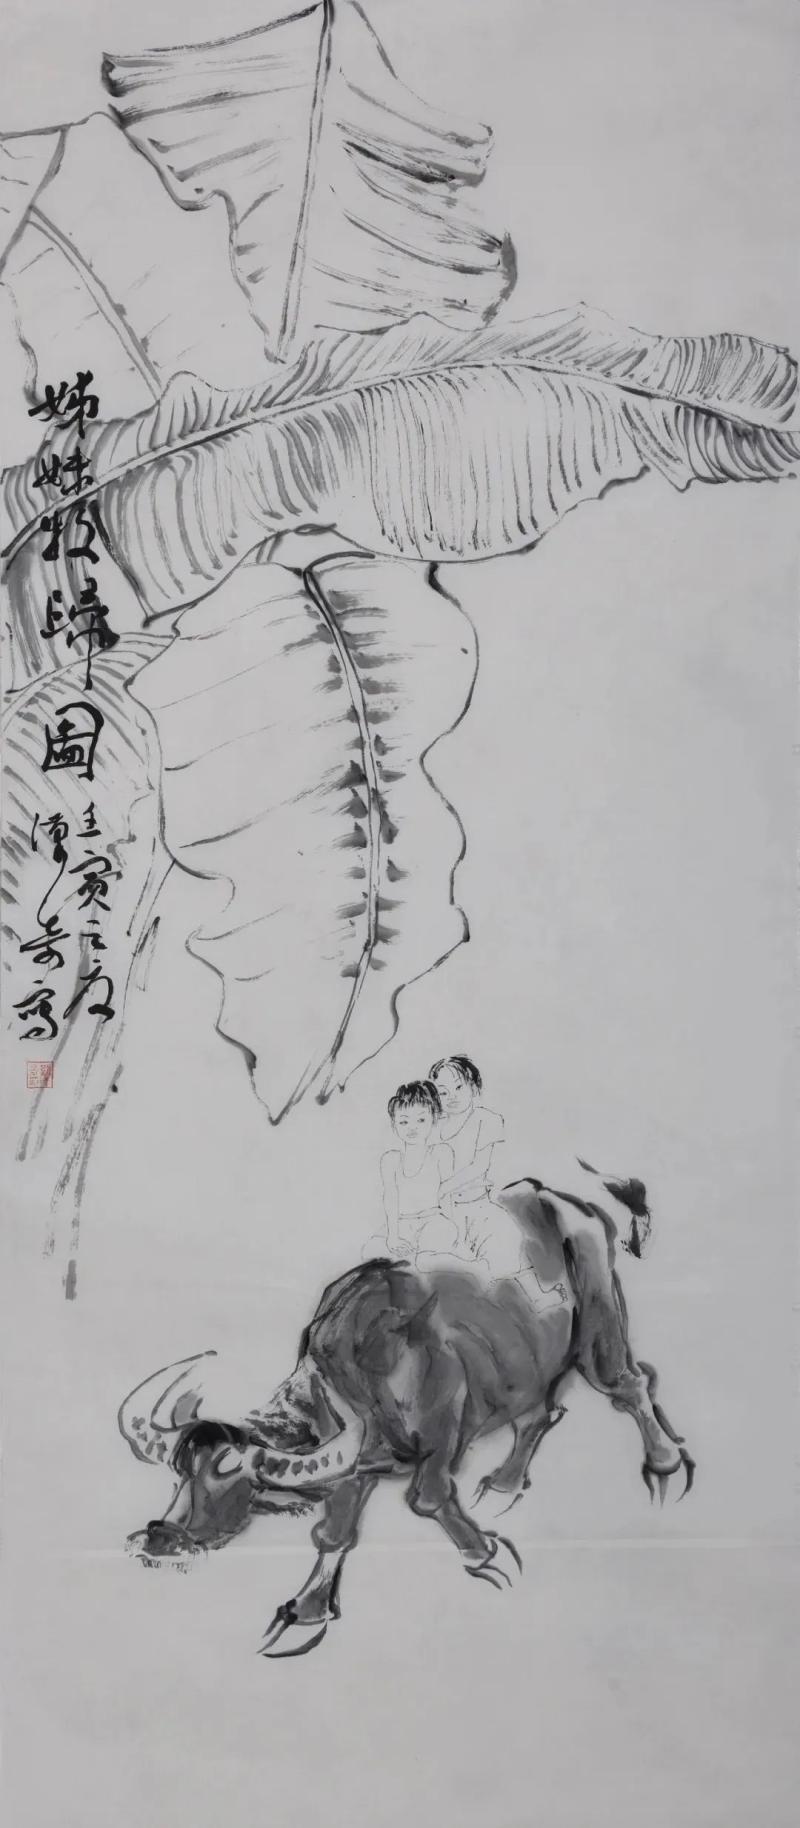 姊妹牧歸圖
壬寅之夏
漢奇寫